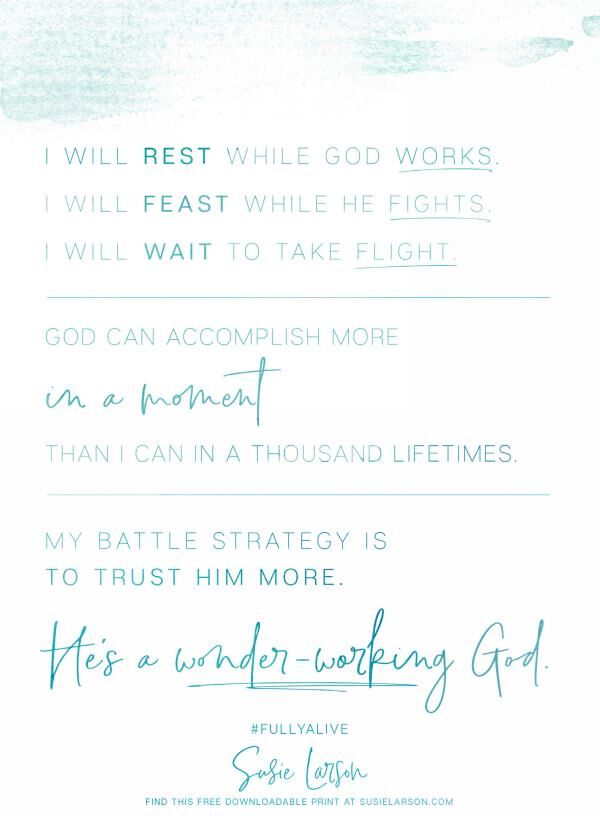 I WILL REST WHILE GOD WORKS.
I WILL FEAST WHILE HE FIGHTS.
I WILL WAIT TO TAKE FLIGHT.
GOD CAN ACCOMPLISH MORE
in a moment
THAN I CAN IN A THOUSAND LIFETIMES.
MY BATTLE STRATEGY IS
TO TRUST HIM MORE.
He's a wonder-working God.
#FULLYALIVE
Susie Larson
FIND THIS FREE DOWNLOADABLE PRINT AT SUSIELARSON.COM